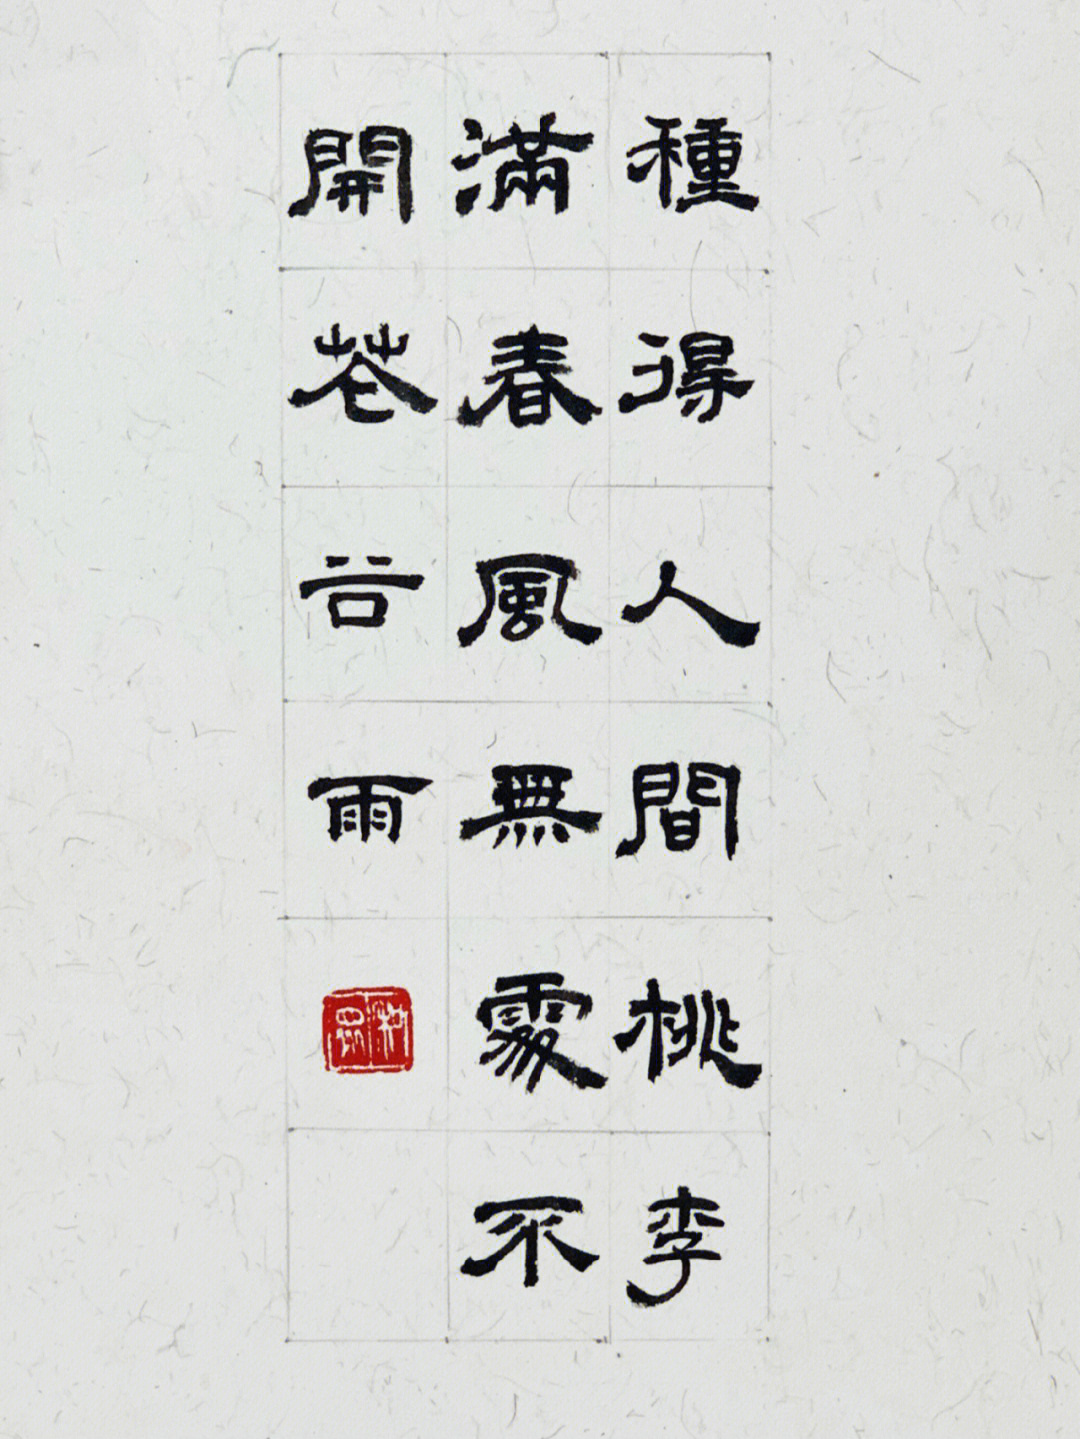 種得人間桃李
滿春風無處不
開花谷雨